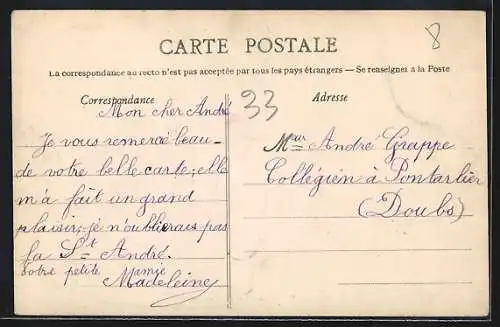 8
CARTE POSTALE
La correspondance au recto n'est pas acceptée par tous les pays étrangers — Se renseigner à la Poste
Correspondance
33
Adresse
Mon cher André
Je vous remercie beau-
de votre belle carte; elle
m'a fait un grand
plaisir; je n'oublierais pas
la St André.
Votre petite
Mamie
Madeleine
Mr André Grappe
Collégien à Pontarlier
(Doubs)